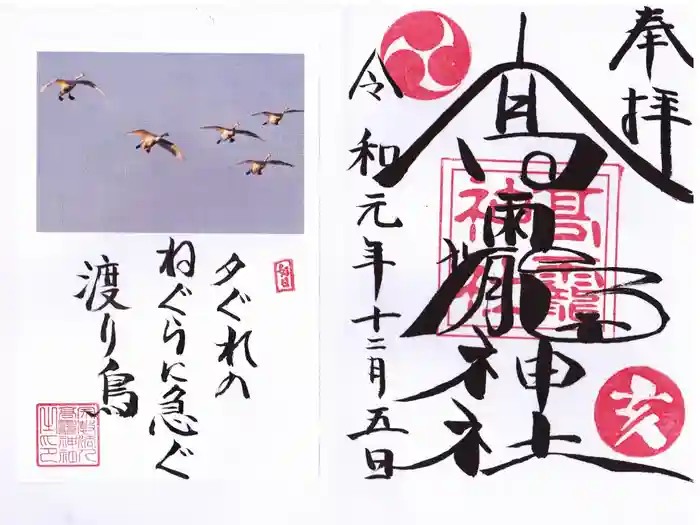 奉拝
高龗神社
高龗神社
亥
令和元年十二月五日
夕ぐれの
ねぐらに急ぐ
渡り鳥